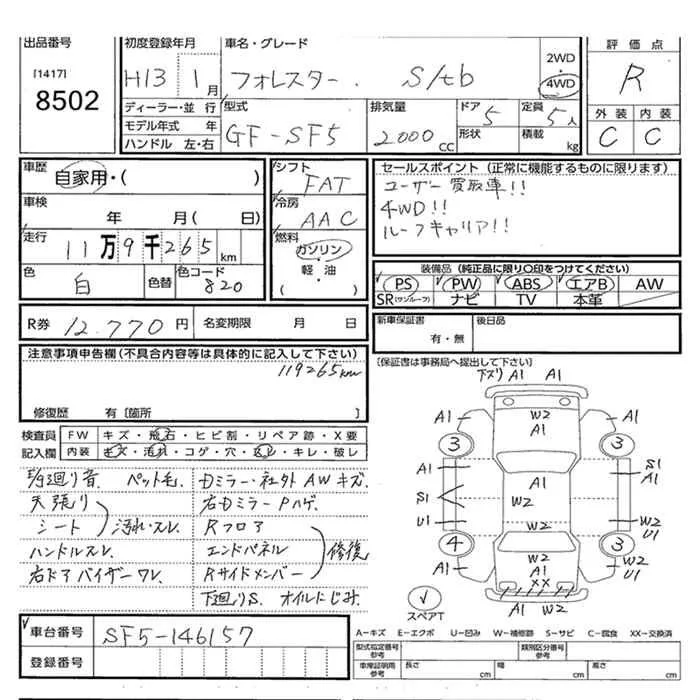 出品番号
[1417]
8502
初度登録年月
H13 年 1 月
車名・グレード
フォレスター. S/tb
2WD
・
4WD
評価点
R
外装 内装
C C
ディーラー・並行
モデル年式 年
ハンドル 左・右
型式
GF-SF5
排気量
2000 cc
ドア 5
形状
定員 5人
積載 kg
車歴
自家用・( )
車検
年 月( 日)
走行
11万9千265 km
色
白
色替
色コード
820
シフト
FAT
冷房
AAC
燃料
ガソリン・
軽・油
( )
セールスポイント (正常に機能するものに限ります)
ユーザー買取車!!
4WD!!
ルーフキャリア!!
装備品 (純正品に限り〇印をつけてください)
PS PW ABS エアB AW
SR(サンルーフ) ナビ TV 本革
R券 12.770円 名変期限 月 日
新車保証書
有・無
後日品
[保証書は事務局へ提出して下さい]
注意事項申告欄(不具合内容等は具体的に記入して下さい)
119265km
修復歴 有〔箇所 〕
検査員 FW キズ・飛石・ヒビ割・リペア跡・X要
記入欄 内装 キズ・汚れ・コゲ・穴・スレ・キレ・破レ
廻り音. ペット毛.
天張り
シート 汚れ・スレ.
ハンドルスレ.
右ドアバイザーワレ.
Dミラー・社外AWキズ.
右DミラーPハゲ.
Rフロア
エンドパネル
Rサイドメンバー
修復
下廻りS. オイルにじみ.
下ズリ A1 A1
A1 W2 A1 A1
3 3
A1 A1 S1
S1 W2 A1
U1 W2 W2
4 3
W2 W2
A1 A1 U1
XX
スペアT
A-キズ E-エクボ U-凹み W-補修跡 S-サビ C-腐食 XX-交換済
車台番号 SF5-146157
登録番号
型式指定番号
参考
類別区分番号
参考
車庫証明用
参考
長さ cm 幅 cm 高さ cm